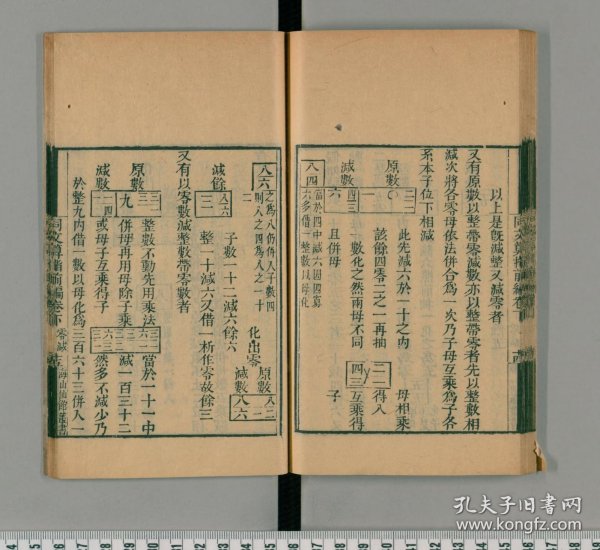 以上是既減整又減零者
又有原數以整帶零減數亦以整帶零者先以整數相
減次將各零母依法併合爲一次乃子母互乘爲子各
系本子位下相減
原數
減數
此先減六於一十之內
該餘四零二之一再抽
一數化之然兩母不同
且併母
母相乘
得八
互乘得
子
八四
當於四中減六因四寡
六多借一整數以母化
同文算指前編卷下
八六
之爲八仍併入子數四
則八之四爲八之一十
二
子數一十二減六餘六
化出零
原數
減數
減餘
三
整一十減六又借一析作零故餘三
又有以零數減整數帶零數者
原數
九
減數
整數不動先用乘法
併母再用母除子乘
或母子互乘得子
當於一十一中
減一百三十二
然多不減少乃
於整九內借一數以母化爲三百六十三併入一
同文算指前編卷下
零減
海山仙館叢書
孔夫子旧书网
www.kongfz.com